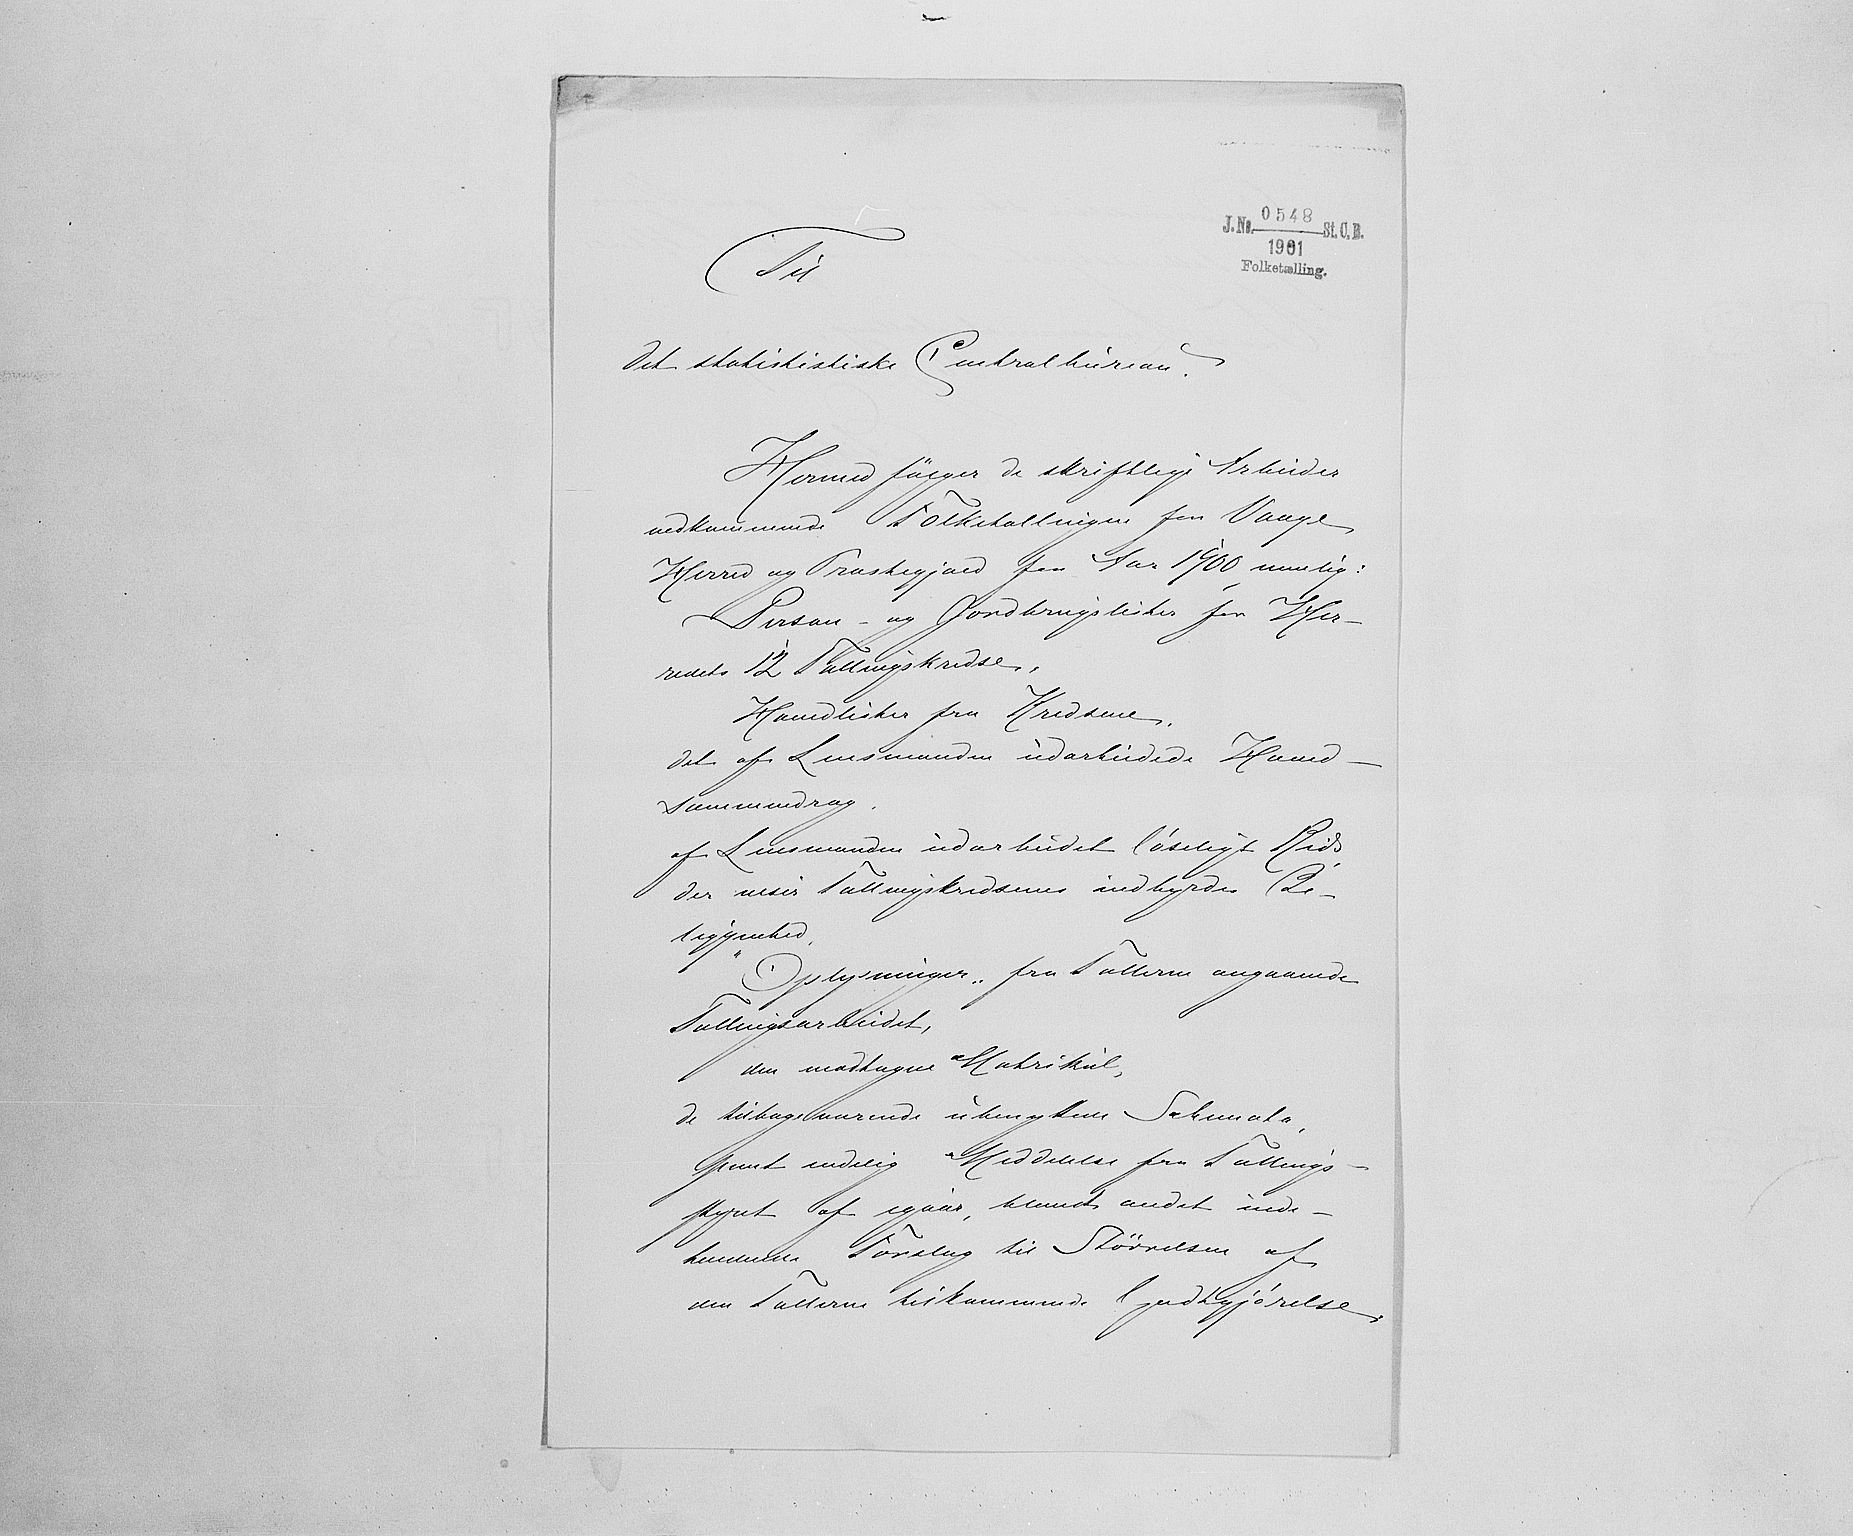 J.No. 0548 St.C.B.
1901
Folketælling.
Til
det statistiske Centralbureau.
Hermed følger de skriftlige Arbeider
vedkommende Folketællingen for Vaage
Herred og Præstegjæld for Aar 1900 nemlig:
Person- og Jordbrugslister for Her-
redets 12 Tællingskredse,
Hovedlister fra Kredsene,
det af Lensmanden udarbeidede Hoved-
sammendrag.
af Lensmanden udarbeidet løseligt Rids
der viser Tællingskredsenes indbyrdes Be-
liggenhed,
"Oplysninger" fra Tællerne angaaende
Tællingsarbeidet,
den modtagne Matrikul,
de tilbageværende ubenyttede Schemata,
samt endelig Meddelelse fra Tællings-
styret af igaar, blandt andet inde-
holdende Forslag til Størrelsen af
den Tællerne tilkommende Godtgjørelse.